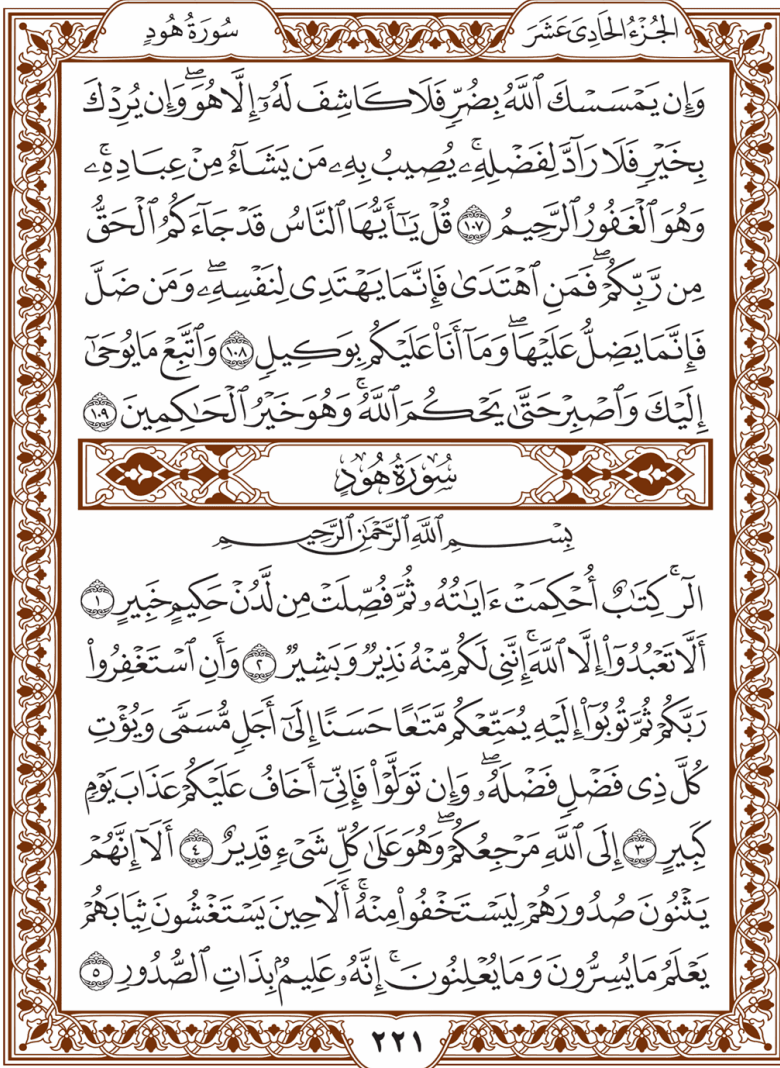 الجُزْءُ الحَادِيَ عَشَرَ
سُورَةُ هُودٍ
وَإِن يَمْسَسْكَ ٱللَّهُ بِضُرٍّ فَلَا كَاشِفَ لَهُۥٓ إِلَّا هُوَۖ وَإِن يُرِدْكَ
بِخَيْرٍ فَلَا رَآدَّ لِفَضْلِهِۦۚ يُصِيبُ بِهِۦ مَن يَشَآءُ مِنْ عِبَادِهِۦۚ
وَهُوَ ٱلْغَفُورُ ٱلرَّحِيمُ ١٠٧ قُلْ يَٰٓأَيُّهَا ٱلنَّاسُ قَدْ جَآءَكُمُ ٱلْحَقُّ
مِن رَّبِّكُمْۖ فَمَنِ ٱهْتَدَىٰ فَإِنَّمَا يَهْتَدِى لِنَفْسِهِۦۖ وَمَن ضَلَّ
فَإِنَّمَا يَضِلُّ عَلَيْهَاۖ وَمَآ أَنَا۠ عَلَيْكُم بِوَكِيلٍ ١٠٨ وَٱتَّبِعْ مَا يُوحَىٰٓ
إِلَيْكَ وَٱصْبِرْ حَتَّىٰ يَحْكُمَ ٱللَّهُۚ وَهُوَ خَيْرُ ٱلْحَٰكِمِينَ ١٠٩
سُورَةُ هُودٍ
بِسْمِ ٱللَّهِ ٱلرَّحْمَٰنِ ٱلرَّحِيمِ
الٓرۚ كِتَٰبٌ أُحْكِمَتْ ءَايَٰتُهُۥ ثُمَّ فُصِّلَتْ مِن لَّدُنْ حَكِيمٍ خَبِيرٍ ١
أَلَّا تَعْبُدُوٓا۟ إِلَّا ٱللَّهَۚ إِنَّنِى لَكُم مِّنْهُ نَذِيرٌ وَبَشِيرٌ ٢ وَأَنِ ٱسْتَغْفِرُوا۟
رَبَّكُمْ ثُمَّ تُوبُوٓا۟ إِلَيْهِ يُمَتِّعْكُم مَّتَٰعًا حَسَنًا إِلَىٰٓ أَجَلٍ مُّسَمًّى وَيُؤْتِ
كُلَّ ذِى فَضْلٍ فَضْلَهُۥۖ وَإِن تَوَلَّوْا۟ فَإِنِّىٓ أَخَافُ عَلَيْكُمْ عَذَابَ يَوْمٍ
كَبِيرٍ ٣ إِلَى ٱللَّهِ مَرْجِعُكُمْۖ وَهُوَ عَلَىٰ كُلِّ شَىْءٍ قَدِيرٌ ٤ أَلَآ إِنَّهُمْ
يَثْنُونَ صُدُورَهُمْ لِيَسْتَخْفُوا۟ مِنْهُۚ أَلَا حِينَ يَسْتَغْشُونَ ثِيَابَهُمْ
يَعْلَمُ مَا يُسِرُّونَ وَمَا يُعْلِنُونَۚ إِنَّهُۥ عَلِيمٌۢ بِذَاتِ ٱلصُّدُورِ ٥
٢٢١